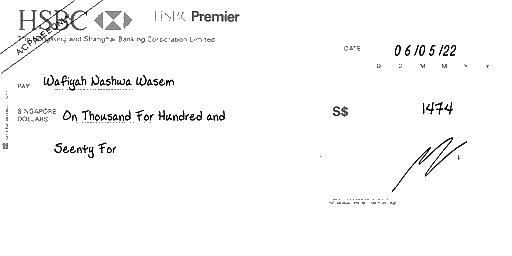 HSBC HSBC Premier
The Hongkong and Shanghai Banking Corporation Limited
A/C PAYEE ONLY
DATE 06/05/22
D D M M Y Y
PAY Wafiyah Nashwa Wasem
SINGAPORE DOLLARS On Thousand For Hundred and
S$ 1474
Seenty For